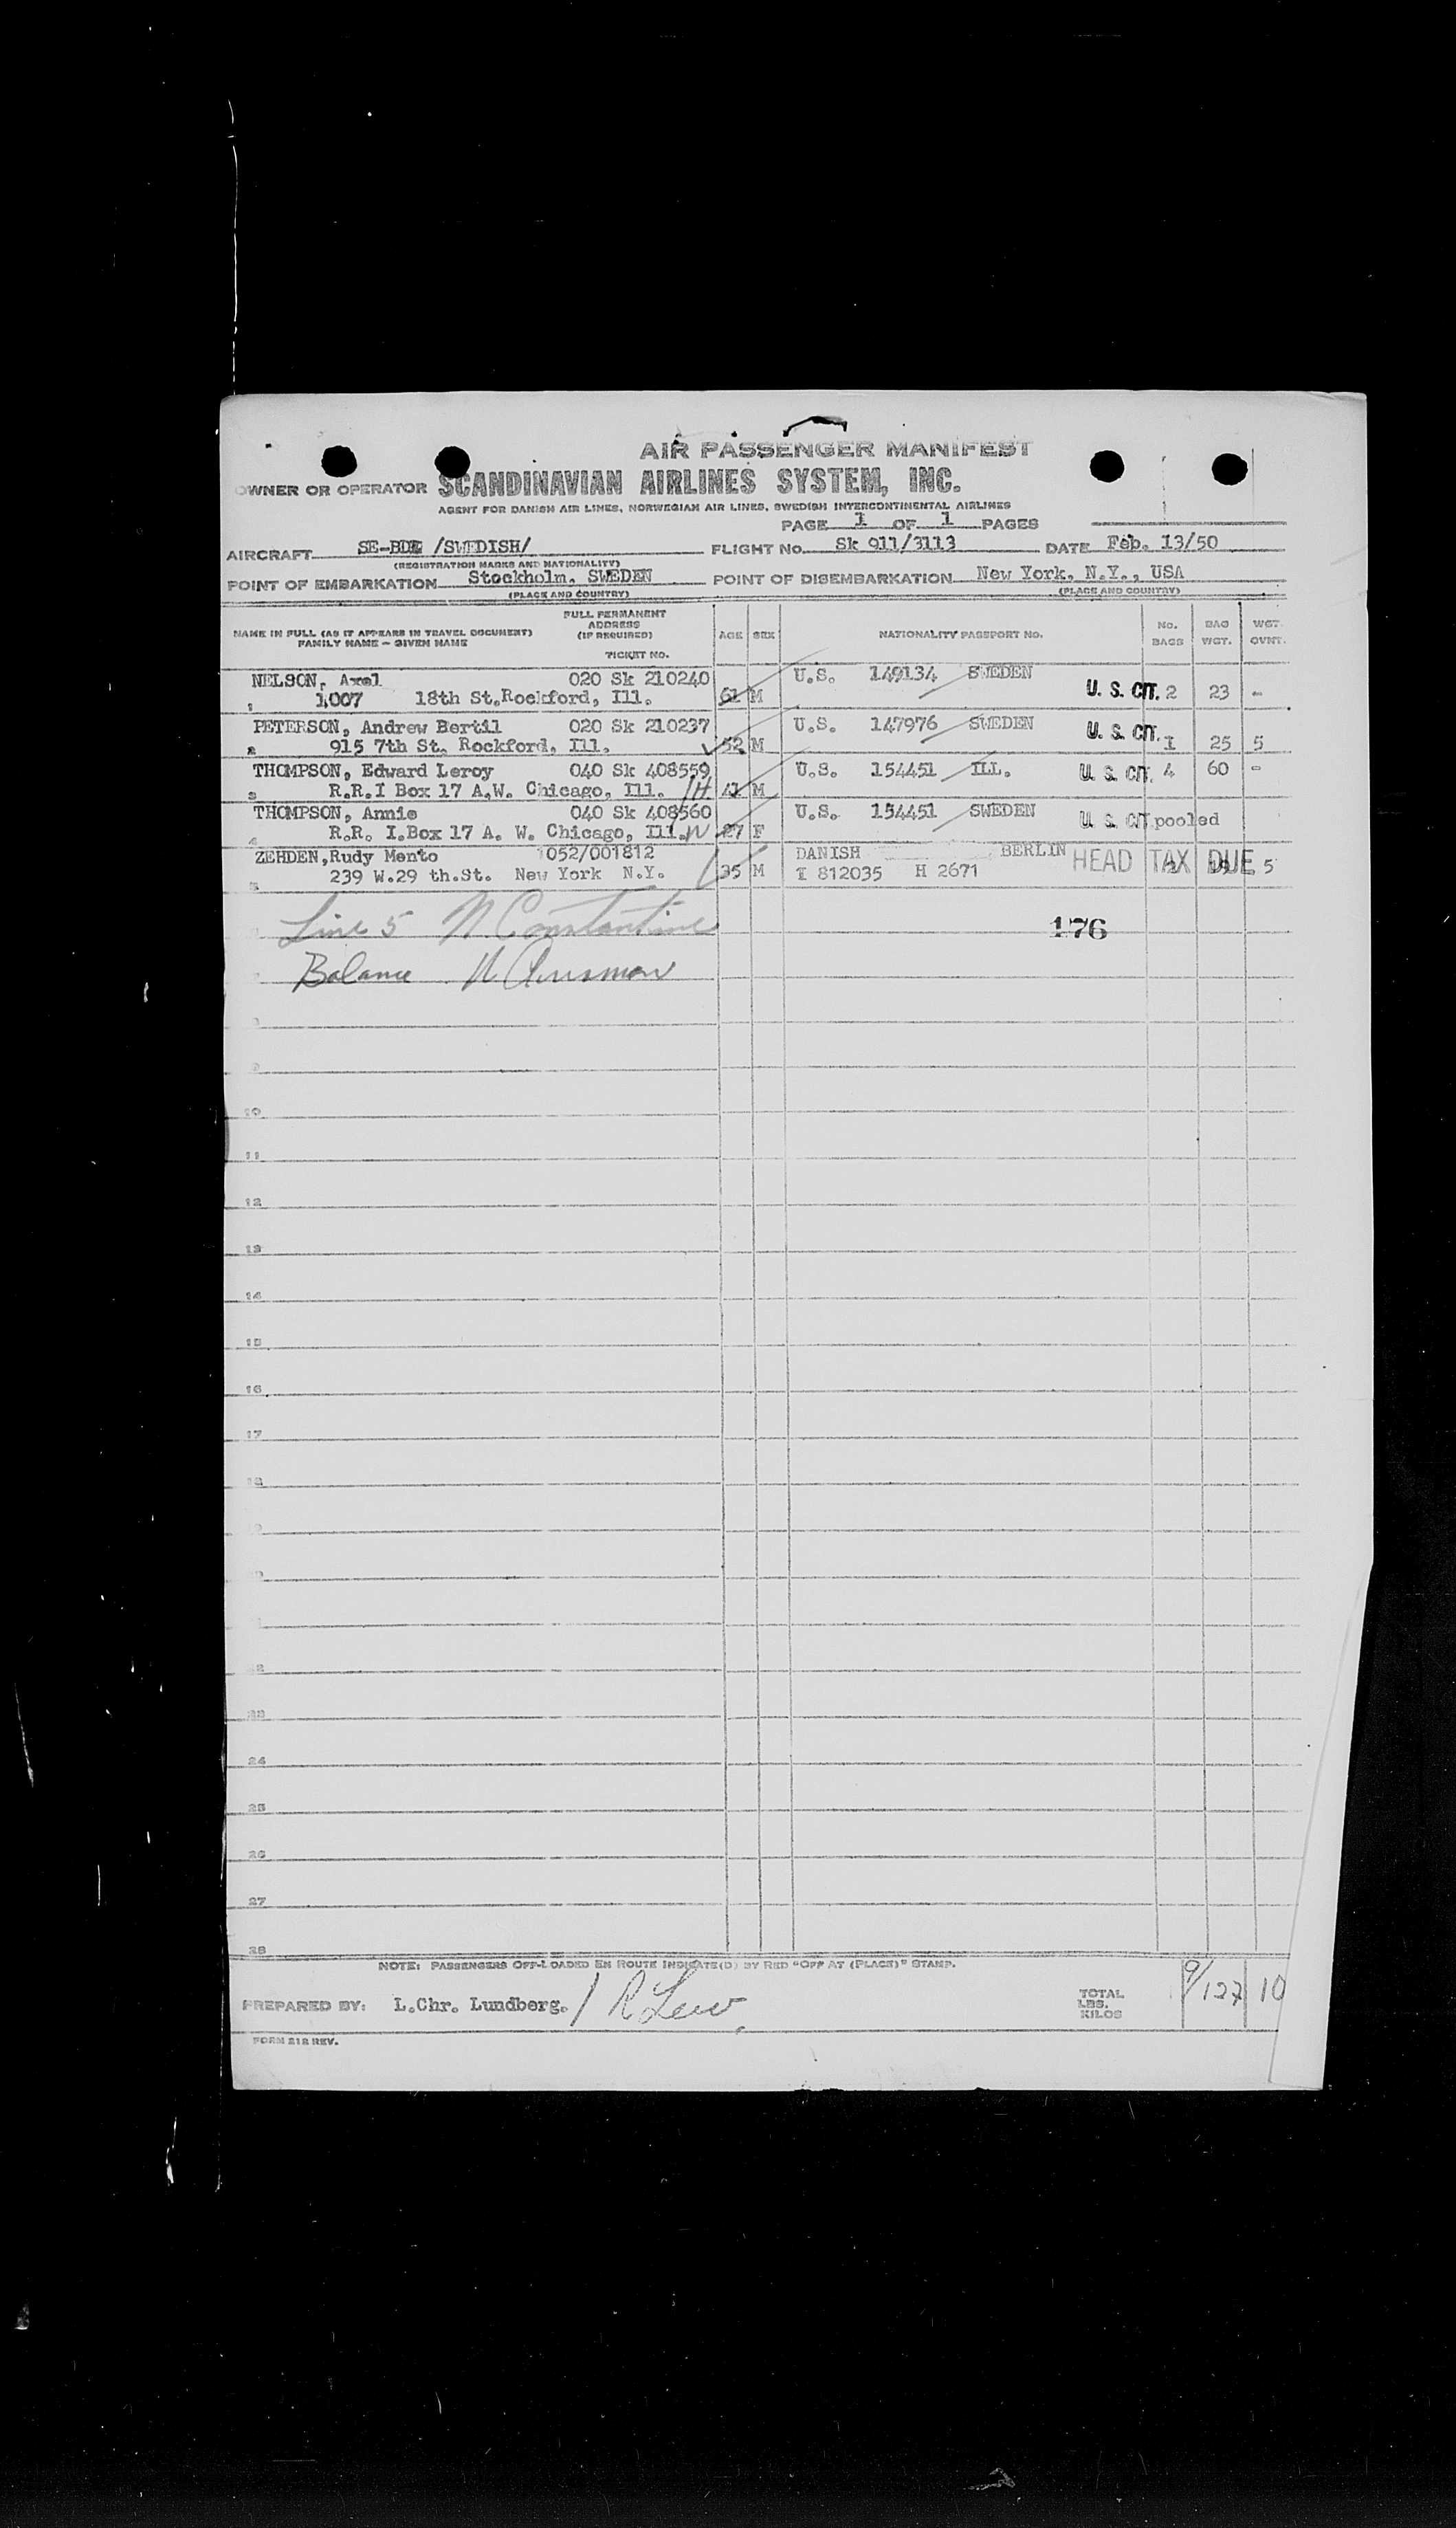 AIR PASSENGER MANIFEST
OWNER OR OPERATOR SCANDINAVIAN AIRLINES SYSTEM, INC.
AGENT FOR DANISH AIR LINES, NORWEGIAN AIR LINES, SWEDISH INTERCONTINENTAL AIRLINES
PAGE 1 OF 1 PAGES
AIRCRAFT /SWEDISH/ FLIGHT No. Sk 911/3113 DATE Feb. 13/50
(REGISTRATION MARKS AND NATIONALITY)
POINT OF EMBARKATION Stockholm, SWEDEN POINT OF DISEMBARKATION New York, N.Y., USA
(PLACE AND COUNTRY) (PLACE AND COUNTRY)
NAME IN FULL (AS IT APPEARS IN TRAVEL DOCUMENT)
FAMILY NAME - GIVEN NAME
FULL PERMANENT
ADDRESS
(IF REQUIRED)
TICKET NO.
AGE SEX NATIONALITY PASSPORT NO. No. BAGS BAG WGT. WGT. OVNT.
NELSON, Axel 020 Sk 210240 U.S. 149134 SWEDEN
1 1007 18th St.Rockford, Ill. 61 M U. S. CIT. 2 23 -
PETERSON, Andrew Bertil 020 Sk 210237 U.S. 147976 SWEDEN
2 915 7th St. Rockford, Ill. 52 M U. S. CIT. 1 25 5
THOMPSON, Edward Leroy 040 Sk 408559 U.S. 154451 ILL. U. S. CIT. 4 60 -
3 R.R.I Box 17 A.W. Chicago, Ill. H M
THOMPSON, Annie 040 Sk 408560 U.S. 154451 SWEDEN U. S. CIT pooled
4 R.R. I.Box 17 A. W. Chicago, Ill. W 27 F
ZEHDEN,Rudy Mento 052/001812 DANISH BERLIN HEAD TAX DUE
5 239 W.29 th.St. New York N.Y. 35 M I 812035 H 2671 5
Line 5 N Constantine
176
Balance N
10
11
12
13
14
15
16
17
18
23
24
25
26
27
28
NOTE: PASSENGERS OFF-LOADED EN ROUTE INDICATE(D) BY RED "OFF AT (PLACE)" STAMP.
PREPARED BY: L.Chr. Lundberg. / TOTAL LBS. KILOS 9/127 10
FORM 212 REV.